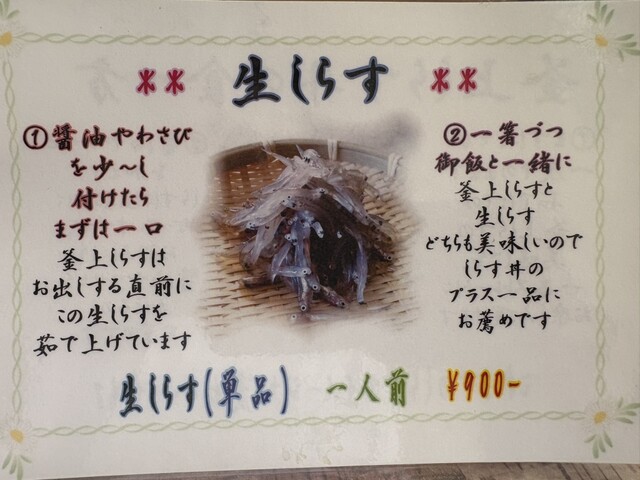 ** 生しらす **
①醤油やわさび
を少〜し
付けたら
まずは一口
釜上しらすは
お出しする直前に
この生しらすを
茹で上げています
②一箸づつ
御飯と一緒に
釜上しらすと
生しらす
どちらも美味しいので
しらす丼の
プラス一品に
お薦めです
生しらす(単品) 一人前 ¥900-